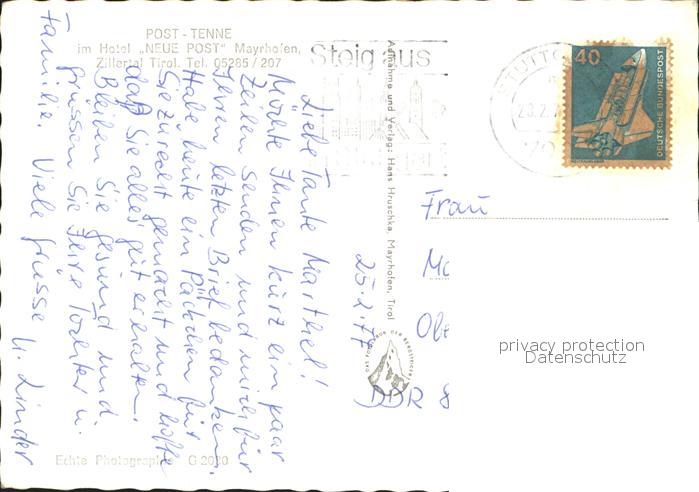 POST - TENNE
im Hotel „NEUE POST" Mayrhofen,
Zillertal Tirol. Tel. 05285 / 207
Steig aus
STUTTG
40
DEUTSCHE BUNDESPOST
Aufnahme und Verlag: Hans Hruschka, Mayrhofen, Tirol
25.2.77
Liebe Tante Marthel!
Möchte Ihnen kurz ein paar
Zeilen senden und mich für
Ihren letzten Brief bedanken.
Habe heute ein Päckchen für
Sie zurecht gemacht und hoffe
daß Sie alles gut erhalten.
Bleiben Sie gesund und
grüssen Sie Ihre Tochter u.
Familie. Viele Grüsse U. Linder
Frau
Mc
Obe
DDR 8
privacy protection
Datenschutz
Echte Photographie G 2020